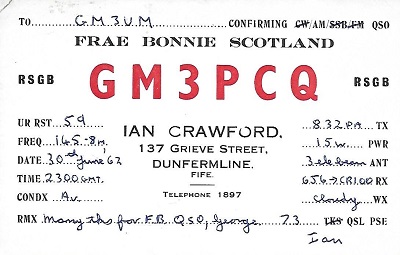 TO GM3UM CONFIRMING CW/AM/SSB.FM QSO
FRAE BONNIE SCOTLAND
RSGB GM3PCQ RSGB
UR RST 59 832 PA TX
FREQ 145.8m IAN CRAWFORD, 15w PWR
DATE 30th June 62 137 GRIEVE STREET, 3 ele beam ANT
TIME 2300 GMT. DUNFERMLINE, 6J6 → CR100 RX
FIFE.
CONDX Av. TELEPHONE 1897 Cloudy WX
RMX Many tks for FB QSO, George. 73 TKS QSL PSE
Ian